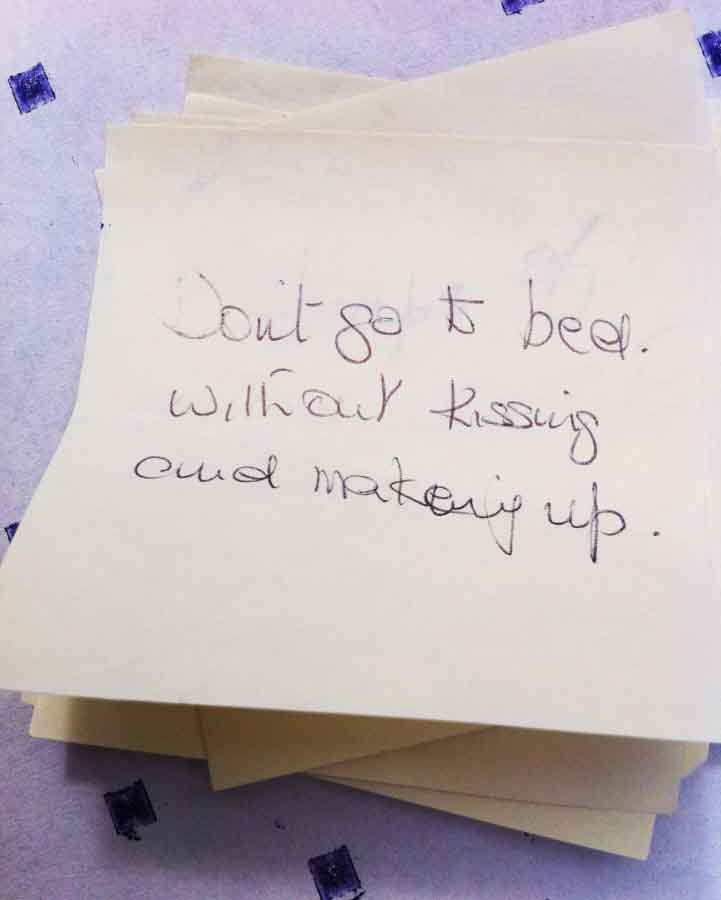 Don't go to bed.
without kissing
and making up.